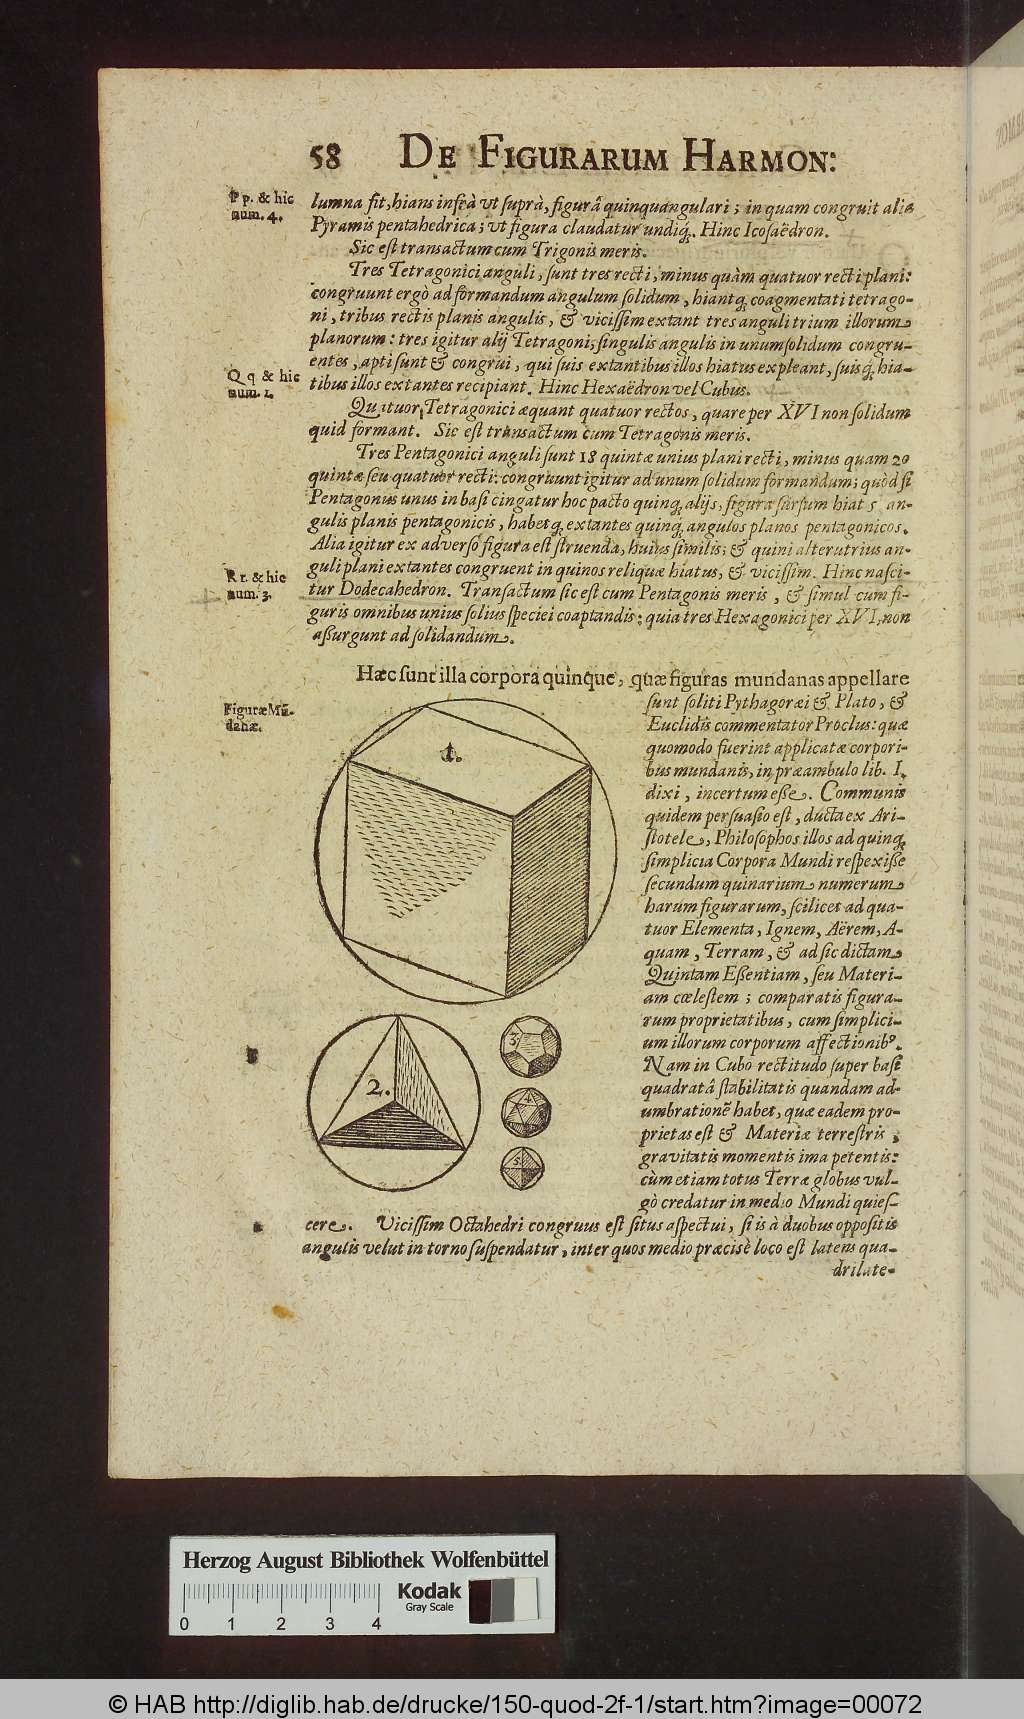 58 DE FIGURARUM HARMON:
Pp. & hic
num. 4.
lumna fit, hians infrà ut suprà, figurâ quinquangulari; in quam congruit alia
Pyramis pentahedrica; ut figura claudatur undiq;. Hinc Icosaëdron.
Sic est transactum cum Trigonis meris.
Tres Tetragonici anguli, sunt tres recti, minus quàm quatuor recti plani:
congruunt ergò ad formandum angulum solidum, hiantq; coagmentati tetrago-
ni, tribus rectis planis angulis, & vicissim extant tres anguli trium illorum
planorum: tres igitur alij Tetragoni, singulis angulis in unum solidum congru-
entes, apti sunt & congrui, qui suis extantibus illos hiatus expleant, suisq; hia-
tibus illos extantes recipiant. Hinc Hexaëdron vel Cubus.
Q q & hic
num. 1.
Quatuor Tetragonici æquant quatuor rectos, quare per XVI non solidum
quid formant. Sic est transactum cum Tetragonis meris.
Tres Pentagonici anguli sunt 18 quintæ unius plani recti, minus quam 20
quintæ seu quatuor recti: congruunt igitur ad unum solidum formandum; quòd si
Pentagonus unus in basi cingatur hoc pacto quinq; alijs, figura sursum hiat 5 an-
gulis planis pentagonicis, habetq; extantes quinq; angulos planos pentagonicos.
Alia igitur ex adverso figura est struenda, huius similis; & quini alterutrius an-
guli plani extantes congruent in quinos reliquæ hiatus, & vicissim. Hinc nasci-
R r. & hic
num. 3.
tur Dodecahedron. Transactum sic est cum Pentagonis meris, & simul cum fi-
guris omnibus unius solius speciei coaptandis: quia tres Hexagonici per XVI, non
assurgunt ad solidandum.
Hæc sunt illa corpora quinque, quæ figuras mundanas appellare
Figuræ Mũ-
danæ.
sunt soliti Pythagoræi & Plato, &
Euclidis commentator Proclus: quæ
quomodo fuerint applicatæ corpori-
bus mundanis, in præambulo lib. I.
dixi, incertum esse. Communis
quidem persuasio est, ducta ex Ari-
stotele, Philosophos illos ad quinq;
simplicia Corpora Mundi respexisse
secundum quinarium numerum
harum figurarum, scilicet ad qua-
tuor Elementa, Ignem, Aërem, A-
quam, Terram, & ad sic dictam
Quintam Essentiam, seu Materi-
am cœlestem; comparatis figura-
rum proprietatibus, cum simplici-
um illorum corporum affectionib⁹.
Nam in Cubo rectitudo super basẽ
quadratâ stabilitatis quandam ad-
umbrationẽ habet, quæ eadem pro-
prietas est & Materiæ terrestris,
gravitatis momentis ima petentis:
cùm etiam totus Terræ globus vul-
gò credatur in medio Mundi quies-
1.
2.
3.
4
5
cere. Vicissim Octahedri congruus est situs aspectui, si is à duobus oppositis
angulis velut in torno suspendatur, inter quos medio præcisè loco est latens qua-
drilate-
Herzog August Bibliothek Wolfenbüttel
Kodak
Gray Scale
0 1 2 3 4
© HAB http://diglib.hab.de/drucke/150-quod-2f-1/start.htm?image=00072